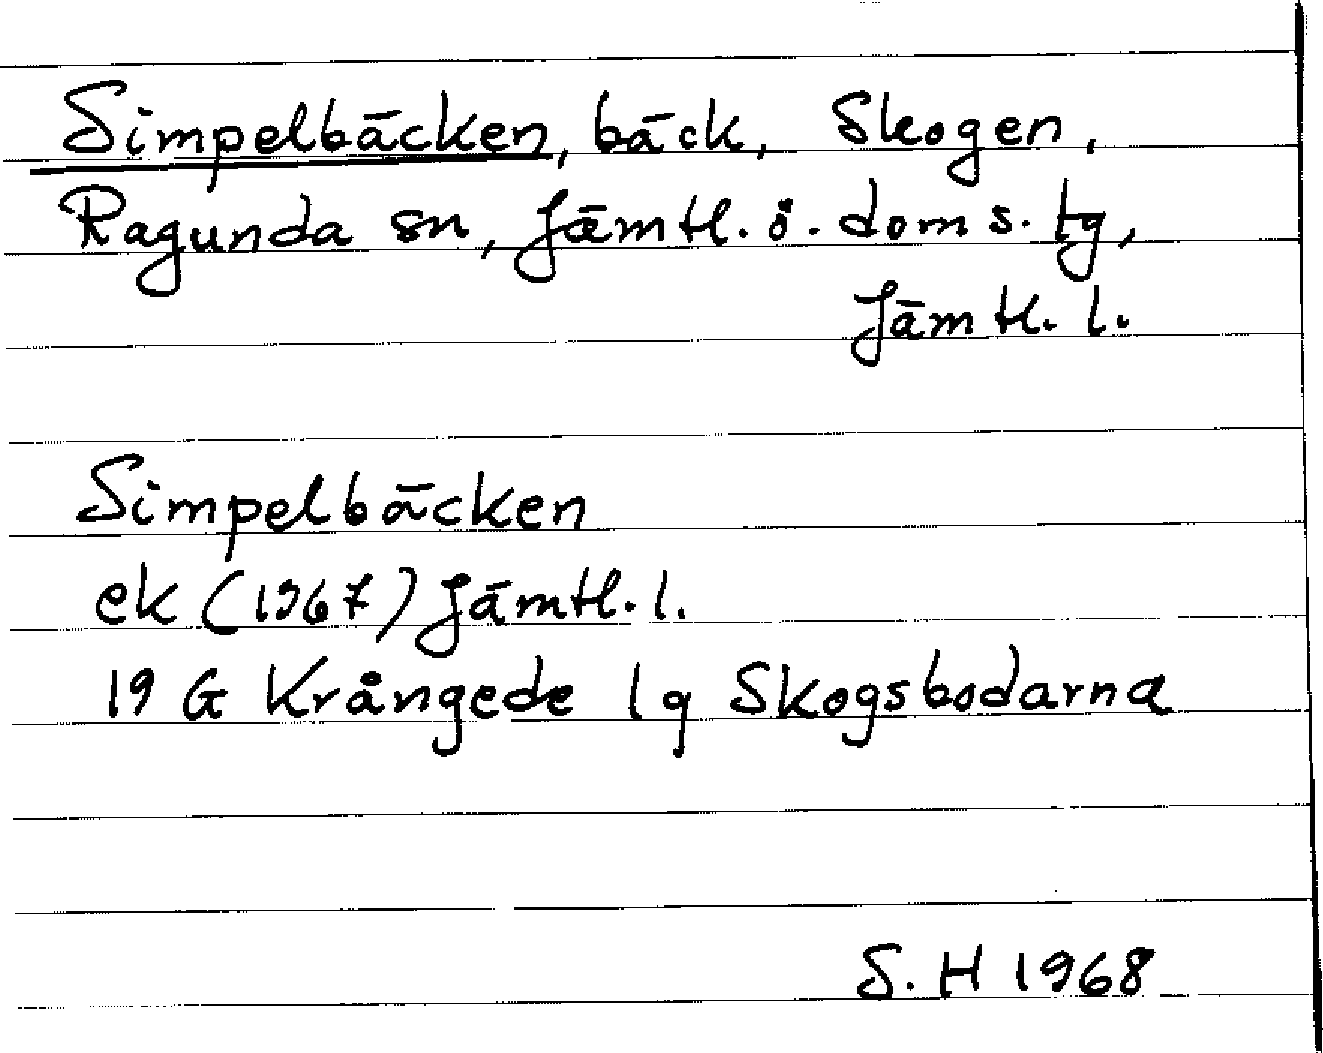 Simpelbäcken, bäck, Skogen,
Ragunda sn, Jämtl. ö. doms. tg,
Jämtl. l.
Simpelbäcken
ek (1967) Jämtl. l.
19 G Krångede 1q Skogsbodarna
S. H 1968